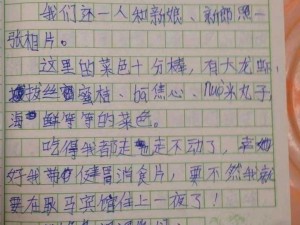 我们还一人和新娘、新郎照一
张相片。
这里的菜色十分棒，有大龙虾、
拔丝蜜桂、豆焦心、nuo米丸子，
海鲜等等的菜色。
吃得我都走走不动了，幸
好我带健胃消食片，要不然我就
要在取马宾馆住上一夜了！